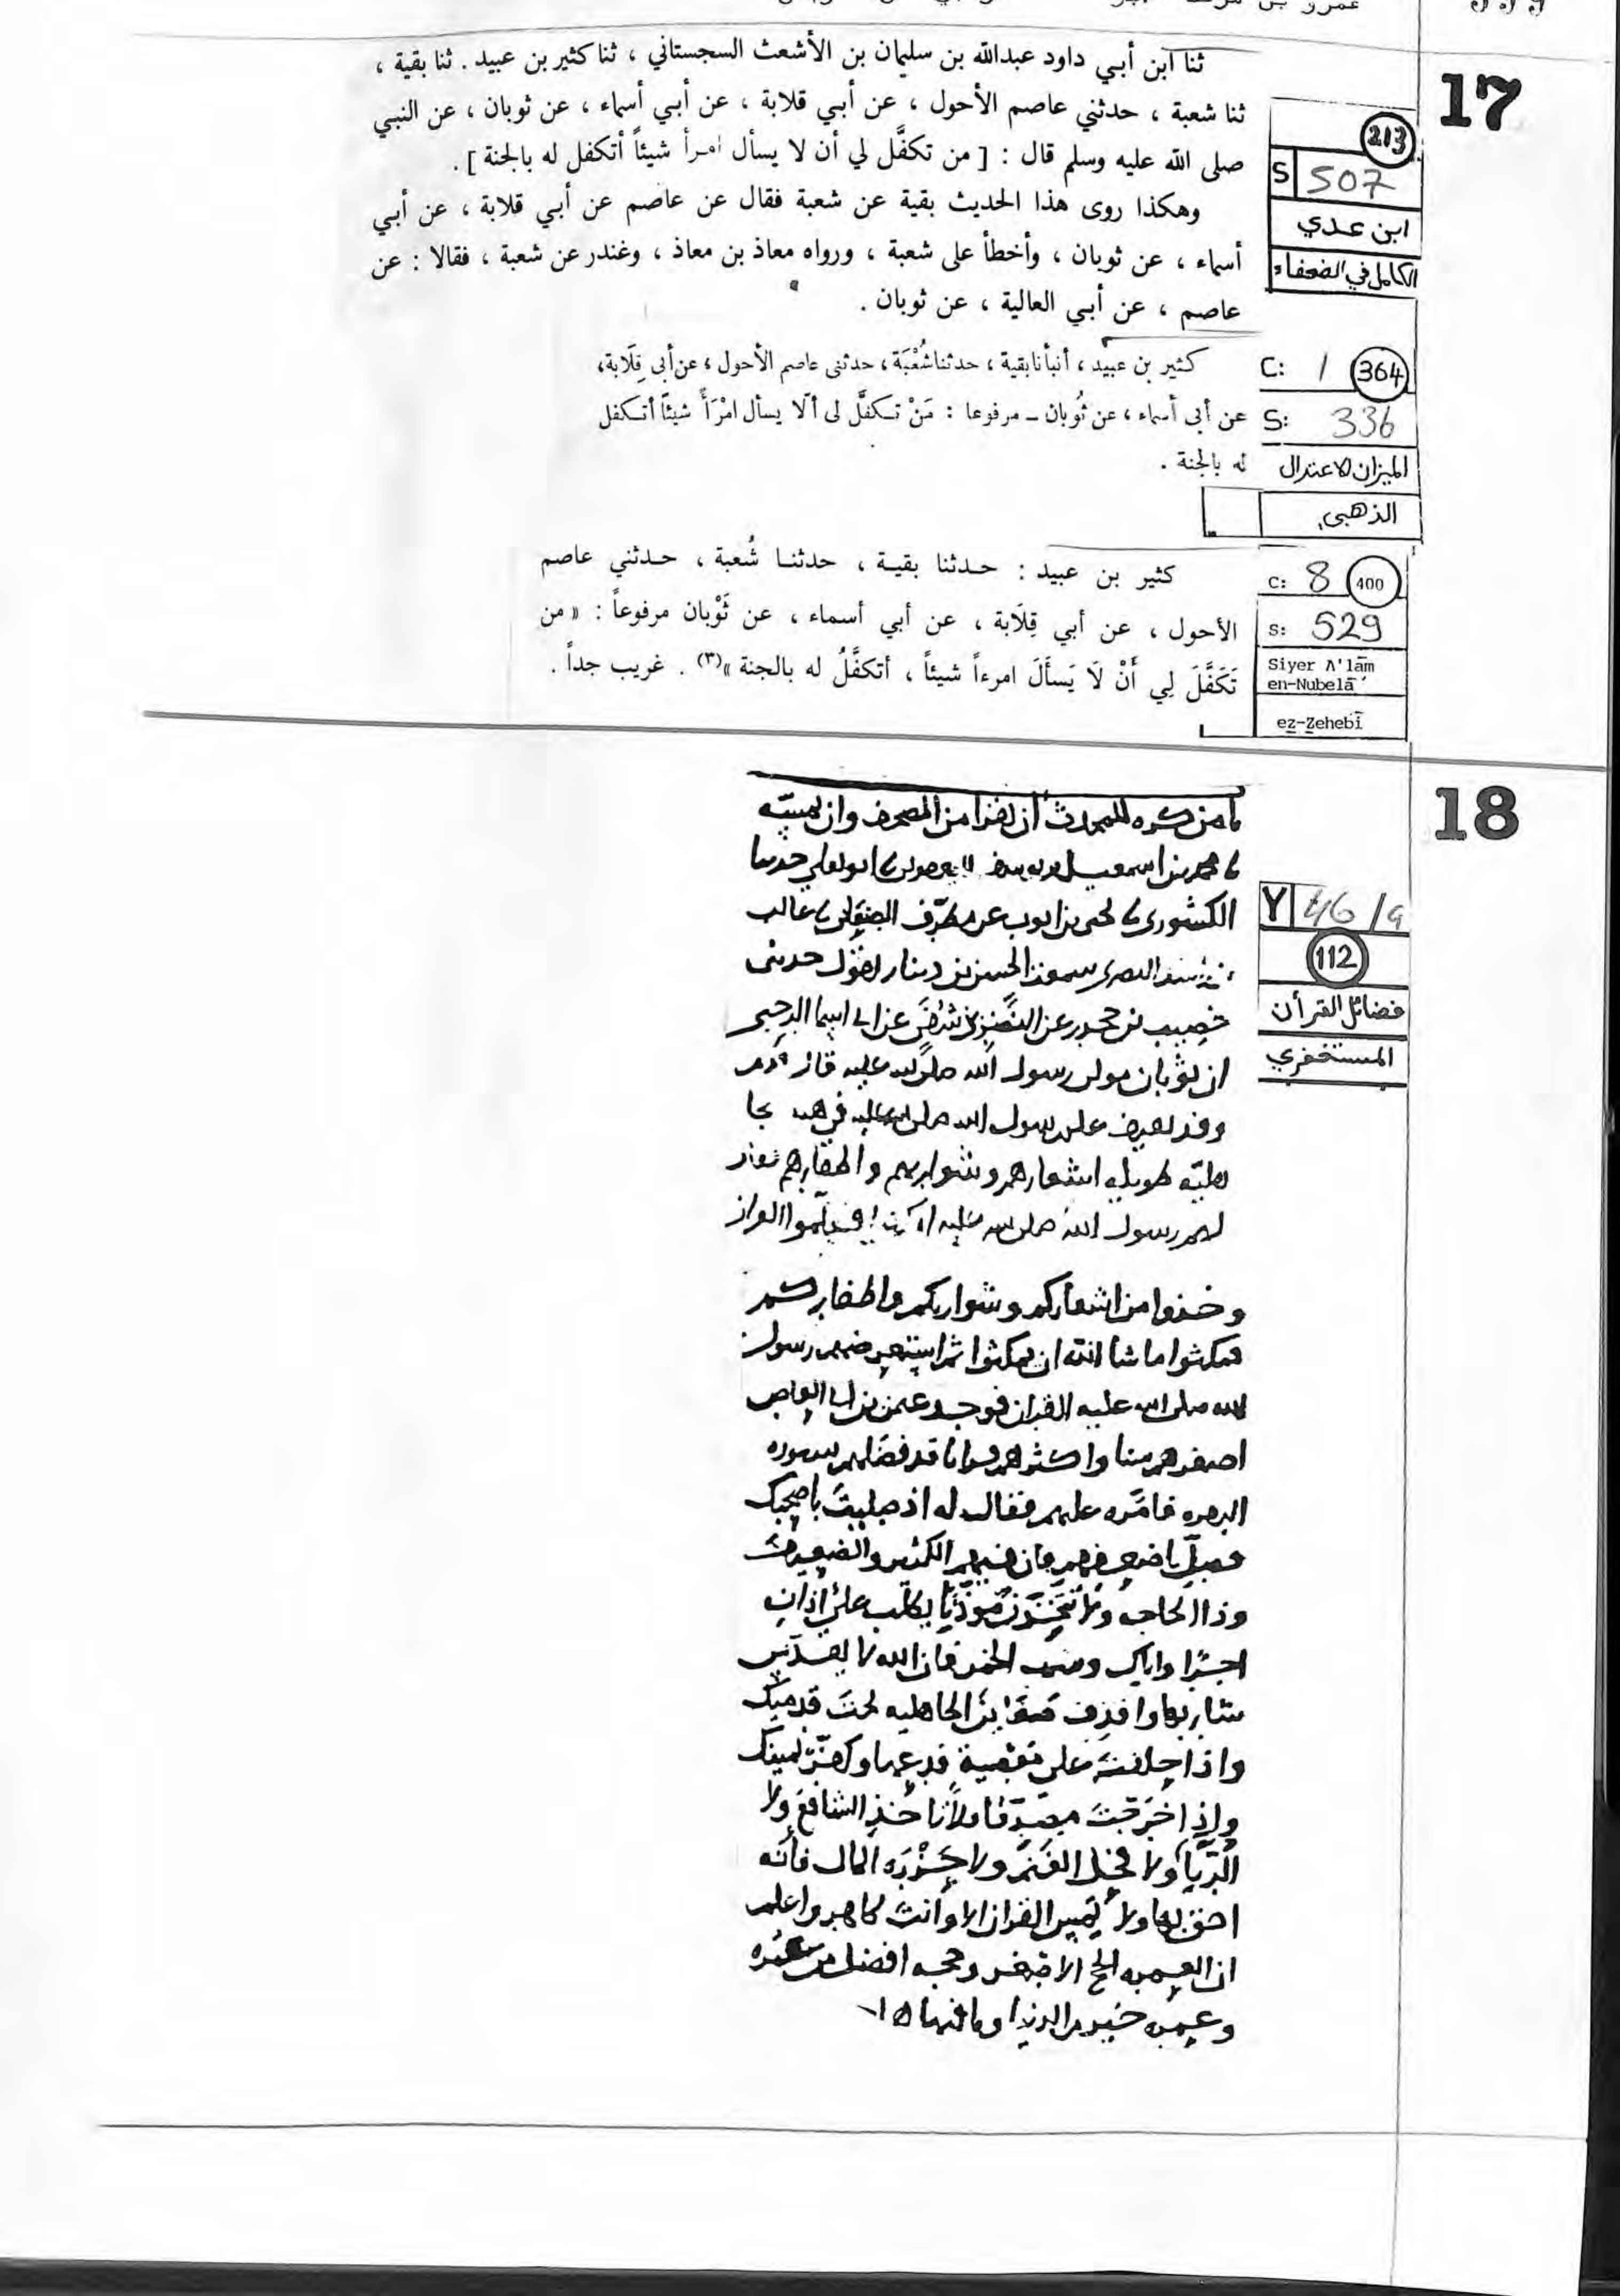 17
ثنا ابن أبي داود عبدالله بن سليمان بن الأشعث السجستاني ، ثنا كثير بن عبيد . ثنا بقية ،
ثنا شعبة ، حدثني عاصم الأحول ، عن أبي قلابة ، عن أبي أسماء ، عن ثوبان ، عن النبي
صلى الله عليه وسلم قال : [ من تكفَّل لي أن لا يسأل امرأ شيئاً أتكفل له بالجنة ] .
وهكذا روى هذا الحديث بقية عن شعبة فقال عن عاصم عن أبي قلابة ، عن أبي
أسماء ، عن ثوبان ، وأخطأ على شعبة ، ورواه معاذ بن معاذ ، وغندر عن شعبة ، فقالا : عن
عاصم ، عن أبي العالية ، عن ثوبان .
213
S 507
ابن عدي
الكامل في الضعفاء
كثير بن عبيد ، أنبأنا بقية ، حدثنا شُعْبَة ، حدثنى عاصم الأحول ، عن أبى قِلَابة ،
عن أبى أسماء ، عن ثُوبان – مرفوعا : مَنْ تكفَّل لى ألّا يسأل امْرَأً شيئاً أتكفل
له بالجنة .
C: 1 364
S: 336
الميزان الاعتدال
الذهبي
كثير بن عبيد : حدثنا بقية ، حدثنا شُعبة ، حدثني عاصم
الأحول ، عن أبي قِلَابة ، عن أبي أسماء ، عن ثَوْبان مرفوعاً : « من
تَكَفَّلَ لِي أَنْ لَا يَسأَلَ امرءاً شيئاً ، أتكفَّلُ له بالجنة »(٣) . غريب جداً .
C: 8 400
S: 529
Siyer A'lām
en-Nubelā'
ez-Zehebī
18
من كره للمحدث ان يقرا من المصحف وان يمسه
محمد بن اسمعيل ابو يعلى حدثنا
الكشورى يحيى بن ايوب عن مطرف غالب
البصرى سمعت الحسن بن دينار يقول حدثنى
خصيب بن جحدر عن النضر بن شفى عن ابى اسما الرحبى
ان ثوبان مولى رسول الله صلى الله عليه قال قدم
وفد ثقيف على رسول الله صلى الله عليه
طويله اشعارهم وشواربهم واظفارهم فقال
لهم رسول الله صلى الله عليه فتعلموا القران
وخذوا من اشعاركم وشواربكم واظفاركم
فمكثوا ما شا الله ان يمكثوا ثم استعرضهم رسول
الله صلى الله عليه القران فوجد عثمن بن ابى العاص
اصغرهم سنا واكثرهم قرانا قد فضلهم بسوره
البقره فامره عليهم فقال له اذا صليت باصحبك
فصل باضعفهم فان فيهم الكبير والضعيف
وذا الحاجه ولا تتخذن موذنا يطلب على اذانه
اجرا واياك وشرب الخمر فان الله لا يقدس
شاربها واقذف الجاهليه تحت قدميك
واذا حلفت على معصية فدعها وكفر يمينك
واذا خرجت مصدقا فلا تاخذ الشافع ولا
الربا ولا فحل الغنم ولا حزره المال فانه
احق بها ولا تمس القران الا وانت طاهر واعلم
ان العمره الحج الاصغر وحجه افضل من عمره
وعمره خير من الدنيا وما فيها
Y 46/a
112
فضائل القرأن
المستغفري